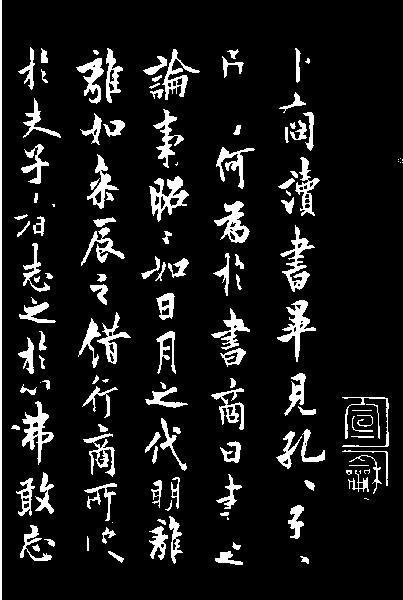 卜商讀書畢見孔〻子〻
問何為於書商曰書之
論事昭〻如日月之代明離
離如參辰之錯行商所受
於夫子者志之於心弗敢忘
宣龢